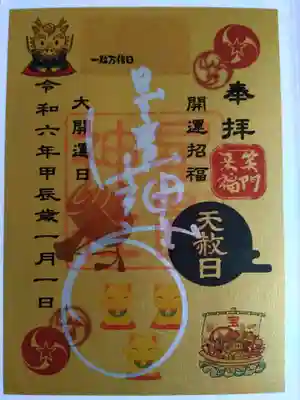 奉拝
笑門
来福
天赦日
開運招福
一粒万倍日
大開運日
令和六年甲辰歳一月一日